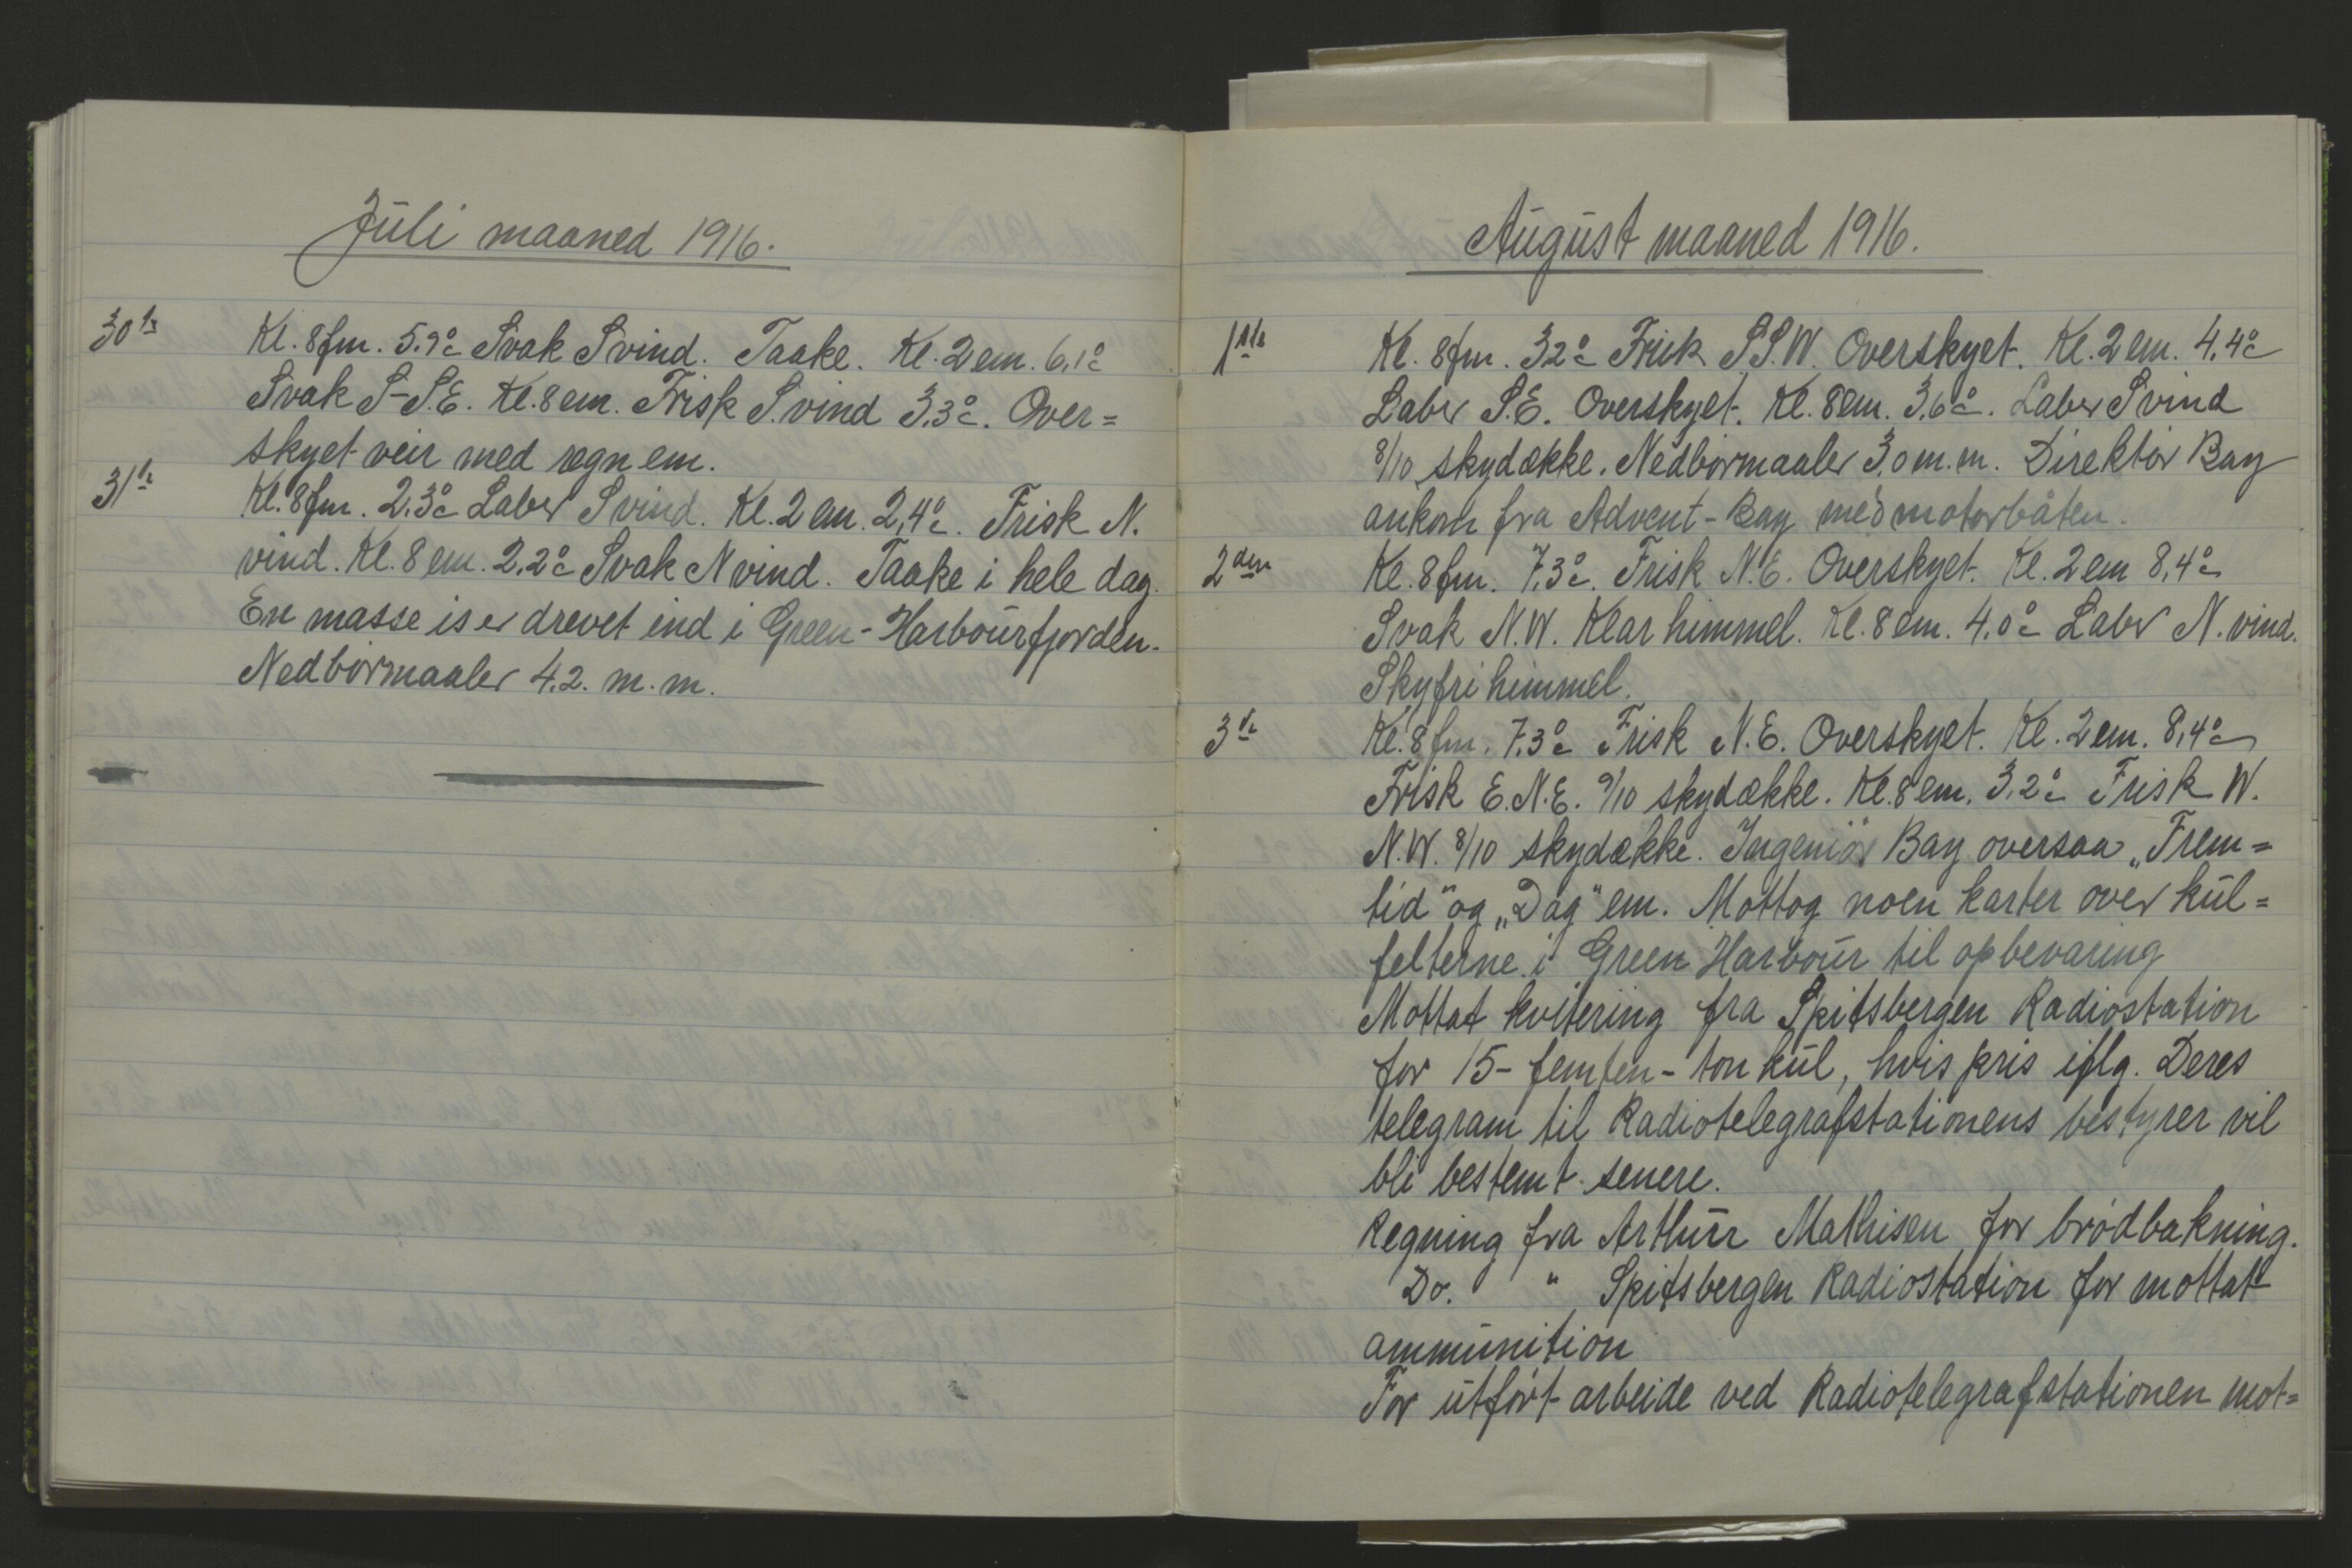 Juli maaned 1916.
30te Kl. 8 fm. 5.9° c Svak S vind. Taake. Kl. 2 em. 6,1° c
Svak S-S.E. Kl. 8 em. Frisk S. vind 3.3° c. Over=
skyet veir med regn em.
31te Kl. 8 fm. 2.3° c Laber S vind. Kl. 2 em. 2,4° c. Frisk N.
vind. Kl. 8 em. 2.2° c Svak N vind. Taake i hele dag.
En masse is er drevet ind i Green-Harbourfjorden.
Nedbörmaaler 4.2. m.m.
August maaned 1916.
1ste Kl. 8 fm. 3.2° c Frisk S.S.W. Overskyet. Kl. 2 em. 4,4° c
Laber S.E. Overskyet. Kl. 8 em. 3,6° c. Laber S vind
8/10 skydække. Nedbörmaaler 3,0 m.m. Direktör Bay
ankom fra Advent-Bay med motorbåten.
2den Kl. 8 fm. 7.3° c. Frisk N.E. Overskyet. Kl. 2 em 8,4° c
Svak N.W. Klar himmel. Kl. 8 em. 4.0° c Laber N. vind.
Skyfri himmel.
3de Kl. 8 fm. 7.3° c Frisk N.E. Overskyet. Kl. 2 em. 8,4° c
Frisk E.N.E. 9/10 skydække. Kl. 8 em. 3,2° c Frisk W.
N.W. 8/10 skydække. Ingeniör Bay oversaa „Frem=
tid" og „Dag" em. Mottog noen karter over kul=
felterne i Green Harbour til opbevaring
Mottat kvitering fra Spitsbergen Radiostation
for 15- femten- ton kul, hvis pris iflg. Deres
telegram til Radiotelegrafstationens bestyrer vil
bli bestemt senere.
Regning fra Arthur Mathisen for brödbakning.
Do. " Spitsbergen Radiostation for mottat
ammunition
For utfört arbeide ved Radiotelegrafstationen mot=